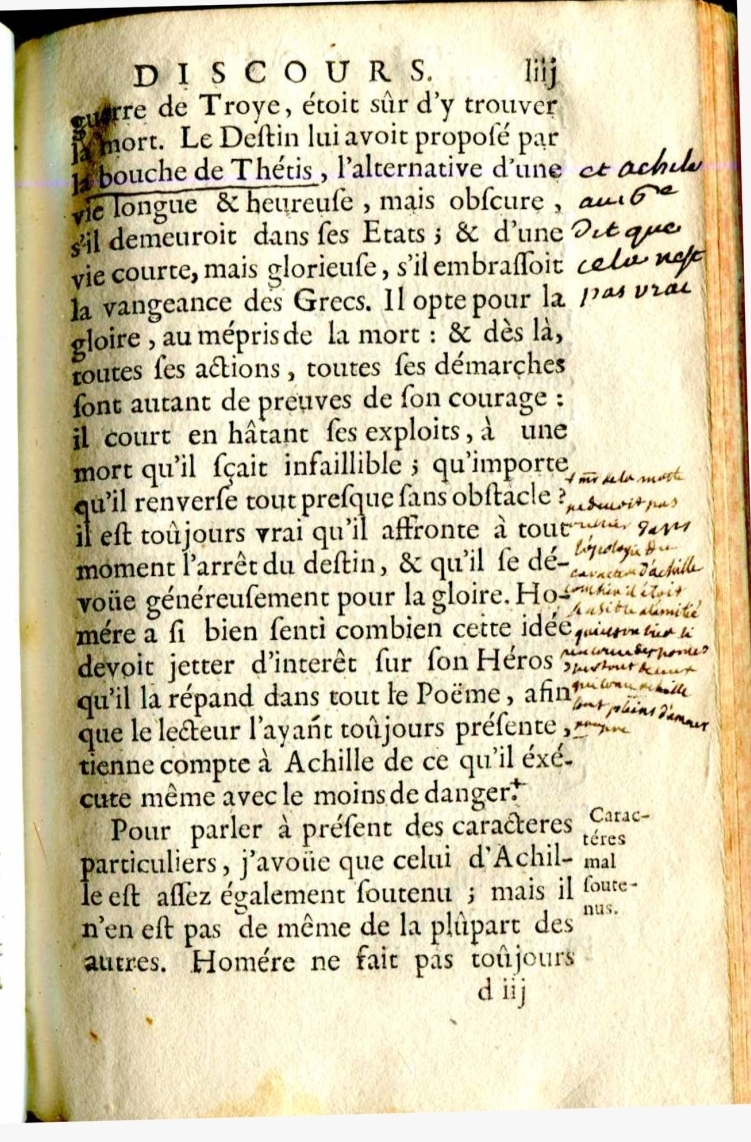 DISCOURS. liij
guerre de Troye, étoit sûr d'y trouver
la mort. Le Deſtin lui avoit propoſé par
la bouche de Thétis, l'alternative d'une
vie longue & heureuſe, mais obſcure,
s'il demeuroit dans ſes Etats; & d'une
vie courte, mais glorieuſe, s'il embraſſoit
la vangeance des Grecs. Il opte pour la
gloire, au mépris de la mort: & dès là,
toutes ſes actions, toutes ſes démarches
ſont autant de preuves de ſon courage:
il court en hâtant ſes exploits, à une
mort qu'il ſçait infaillible; qu'importe
qu'il renverſe tout preſque ſans obſtacle?
il eſt toûjours vrai qu'il affronte à tout
moment l'arrêt du deſtin, & qu'il ſe dé-
voüe généreuſement pour la gloire. Ho-
mére a ſi bien ſenti combien cette idée
devoit jetter d'interêt ſur ſon Héros,
qu'il la répand dans tout le Poëme, afin
que le lecteur l'ayant toûjours préſente,
tienne compte à Achille de ce qu'il éxé-
cute même avec le moins de danger.+
Pour parler à préſent des caracteres
particuliers, j'avoüe que celui d'Achil-
le eſt aſſez également ſoutenu; mais il
n'en eſt pas de même de la plûpart des
autres. Homére ne fait pas toûjours
d iij
et achile
dit que
cela nest
pas vrai
+ mr de la motte
ne devoit pas
dans
caractere d'achille
combien il étoit
achille
sont pleins d'amour
propre
Carac-
téres
mal
ſoute-
nus.